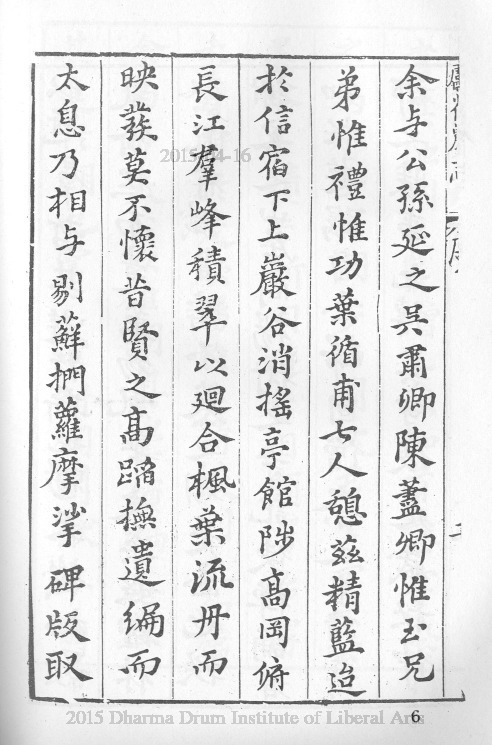 余与公孫延之吳肅卿陳藎卿惟玉兄
弟惟禮惟功葉循甫七人憩茲精藍迨
於信宿下上巖谷消搖亭館陟高岡俯
長江羣峰積翠以廻合楓葉流丹而
映發莫不懷昔賢之高蹈撫遺編而
太息乃相与剔蘚捫蘿摩挲碑版取
2015-04-16
6
2015 Dharma Drum Institute of Liberal Arts